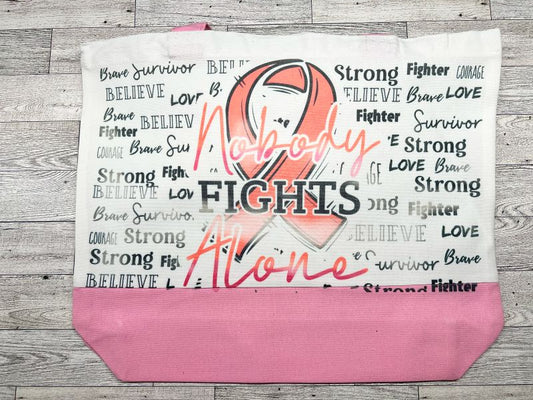 BELIEVE Strong Fighter COURAGE
Brave Survivor
BELIEVE LOVE BELIEVE Brave LOVE
Brave BELIEVE Survivor
Fighter
COURAGE Brave Survivor Fighter Brave
Nobody
Strong Fighter COURAGE LOVE Fighter
BELIEVE LOVE Strong
FIGHTS
Brave Survivor Fighter LOVE
COURAGE Strong BELIEVE
Alone
Strong Brave
BELIEVE Survivor
Strong Fighter